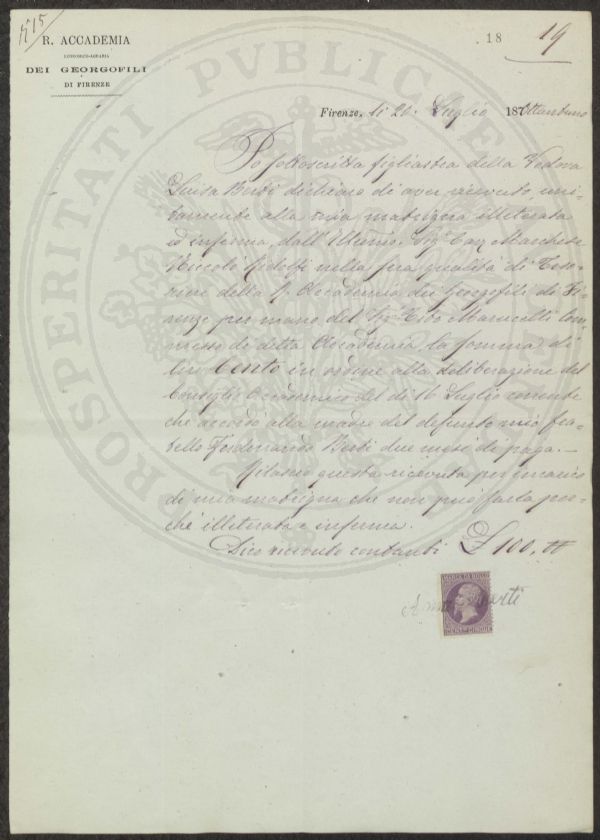 N° 15
R. ACCADEMIA
ECONOMICO-AGRARIA
DEI GEORGOFILI
DI FIRENZE
18
19
Firenze, li 20. Luglio 187Ottantuno
PROSPERITATI PUBLICAE
Io sottoscritta figliastra della Vedova
Luisa Berti dichiaro di aver ricevuto uni-
tamente alla mia matrigna illetterata
ed inferma, dall' Sig Cav Marchese
Niccolò Ridolfi nella sua qualità di Teso-
riere della R. Accademia dei Georgofili di Fi-
renze per mano del Sig Marucelli Com-
messo di detta Accademia, la somma di
lire Cento in ordine alla deliberazione del
Consiglio Accademico del dì 16 Luglio corrente
che accordò alla madre del defunto mio fra-
tello Ferdinando Berti due mesi di paga.—
Rilascio questa ricevuta per incarico
di mia matrigna che non può farla per-
chè illetterata e inferma.
Dico ricevuto contanti £ 100. "
MARCA DA BOLLO
Berti
CENT.MI CINQUE